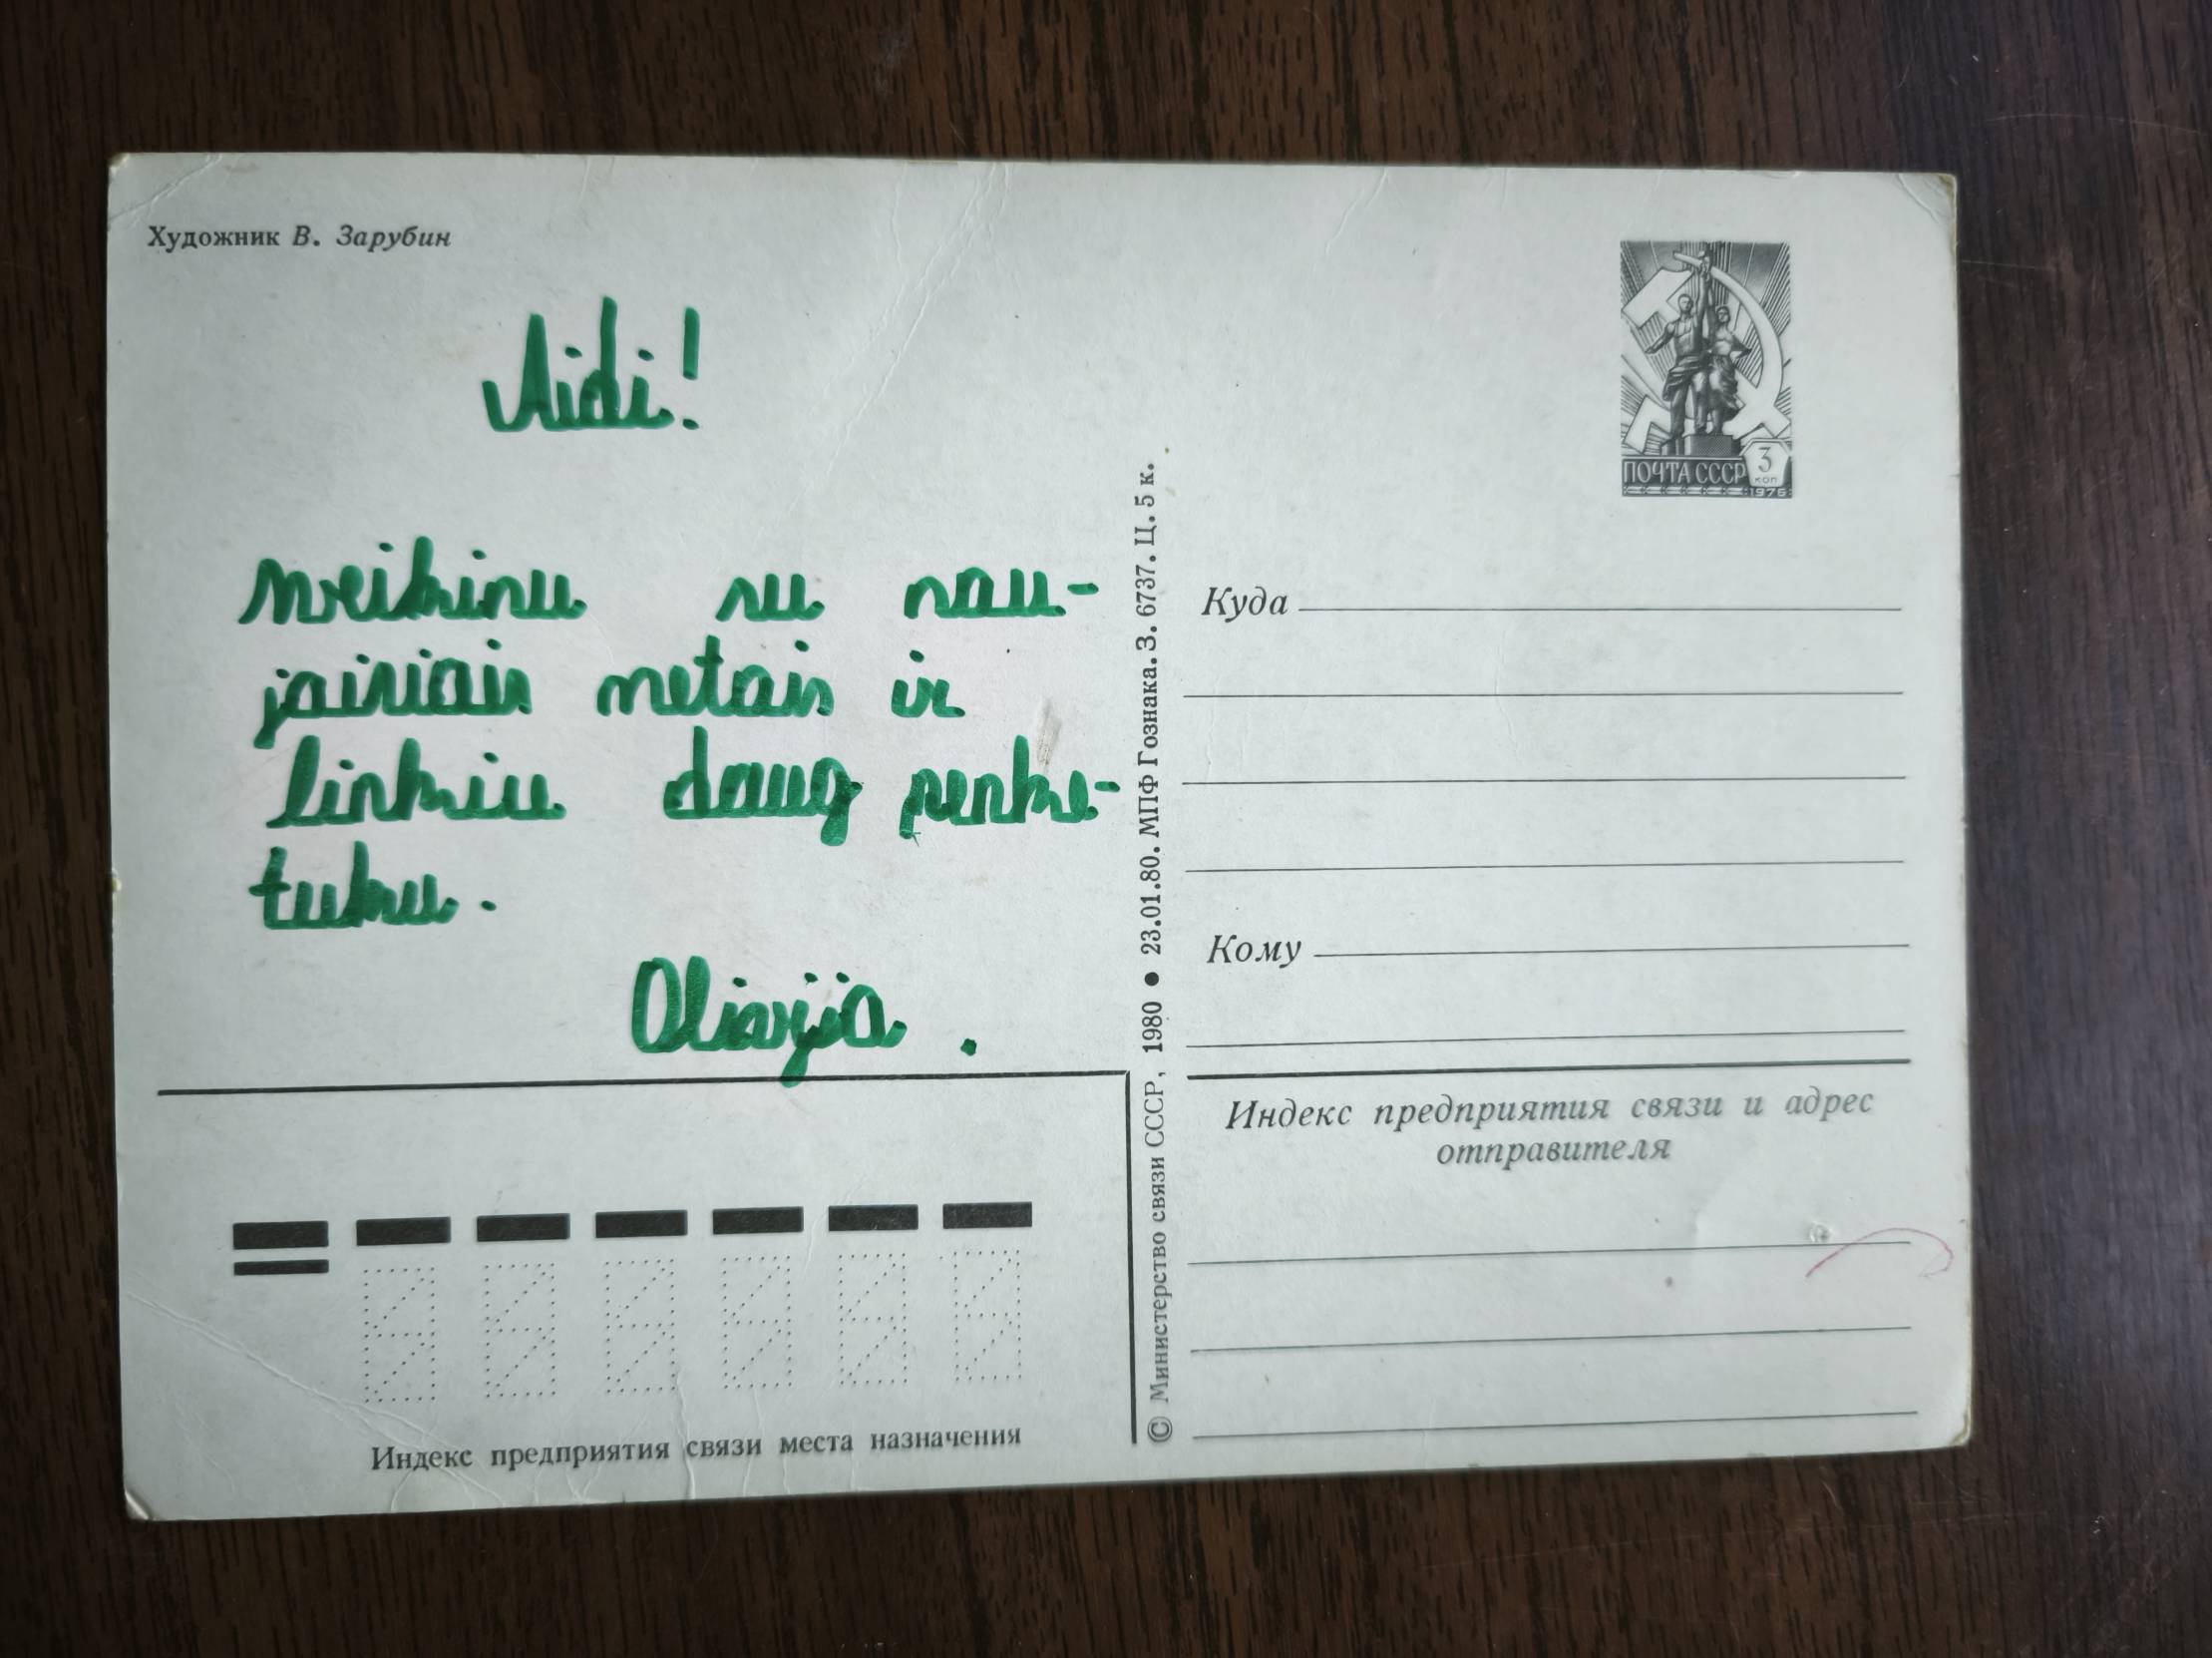 Художник В. Зарубин
Aidi!
sveikinu su nau-
jaisiais metais ir
linkiu daug penke-
tuku.
Olivija.
Индекс предприятия связи места назначения
© Министерство связи СССР, 1980 ● 23.01.80. МПФ Гознака. З. 6737. Ц. 5 к.
ПОЧТА СССР 3
коп
1976
Куда
Кому
Индекс предприятия связи и адрес
отправителя